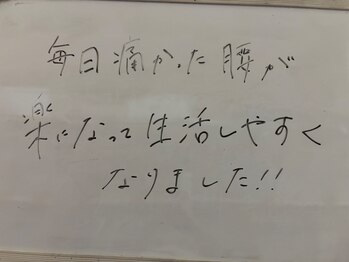 毎日痛かった腰が
楽になって生活しやすく
なりました!!